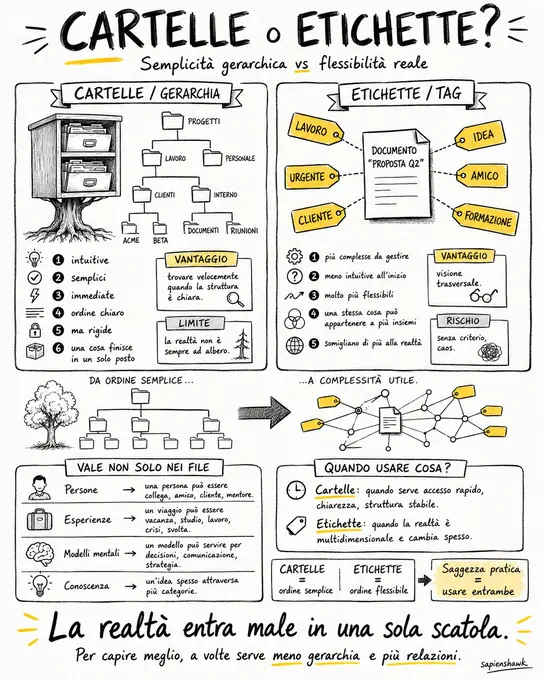 CARTELLE o ETICHETTE?
Semplicità gerarchica vs flessibilità reale
CARTELLE / GERARCHIA
PROGETTI
LAVORO
PERSONALE
CLIENTI
INTERNO
ACME
BETA
DOCUMENTI
RIUNIONI
1 intuitive
2 semplici
3 immediate
4 ordine chiaro
5 ma rigide
6 una cosa finisce
in un solo posto
VANTAGGIO
trovare velocemente
quando la struttura
è chiara.
LIMITE
la realtà non è
sempre ad albero.
ETICHETTE / TAG
LAVORO
URGENTE
CLIENTE
DOCUMENTO
"PROPOSTA Q2"
IDEA
AMICO
FORMAZIONE
1 più complesse da gestire
2 meno intuitive all'inizio
3 molto più flessibili
4 una stessa cosa può
appartenere a più insiemi
5 somigliano di più alla realtà
VANTAGGIO
visione
trasversale.
RISCHIO
senza criterio,
caos.
DA ORDINE SEMPLICE...
...A COMPLESSITÀ UTILE.
VALE NON SOLO NEI FILE
Persone → una persona può essere
collega, amico, cliente, mentore.
Esperienze → un viaggio può essere
vacanza, studio, lavoro,
crisi, svolta.
Modelli mentali → un modello può servire per
decisioni, comunicazione,
strategia.
Conoscenza → un'idea spesso attraversa
più categorie.
QUANDO USARE COSA?
Cartelle: quando serve accesso rapido,
chiarezza, struttura stabile.
Etichette: quando la realtà è
multidimensionale e cambia spesso.
CARTELLE
=
ordine semplice
ETICHETTE
=
ordine flessibile
Saggezza pratica
=
usare entrambe
La realtà entra male in una sola scatola.
Per capire meglio, a volte serve meno gerarchia e più relazioni.
sapienshawk